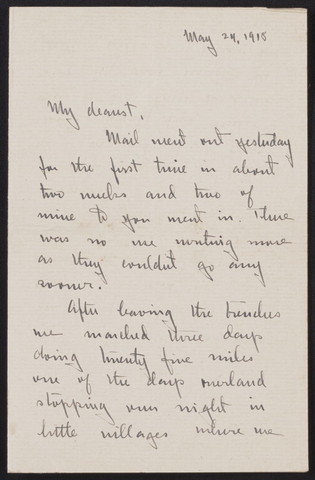 May 24, 1918
My dearest,
Mail went out yesterday
for the first time in about
two weeks and two of
mine to you went in. There
was no use writing more
as they couldn't go any
sooner.
After leaving the trenches
we marched three days
doing twenty five miles
one of the days overland
stopping over night in
little villages where we